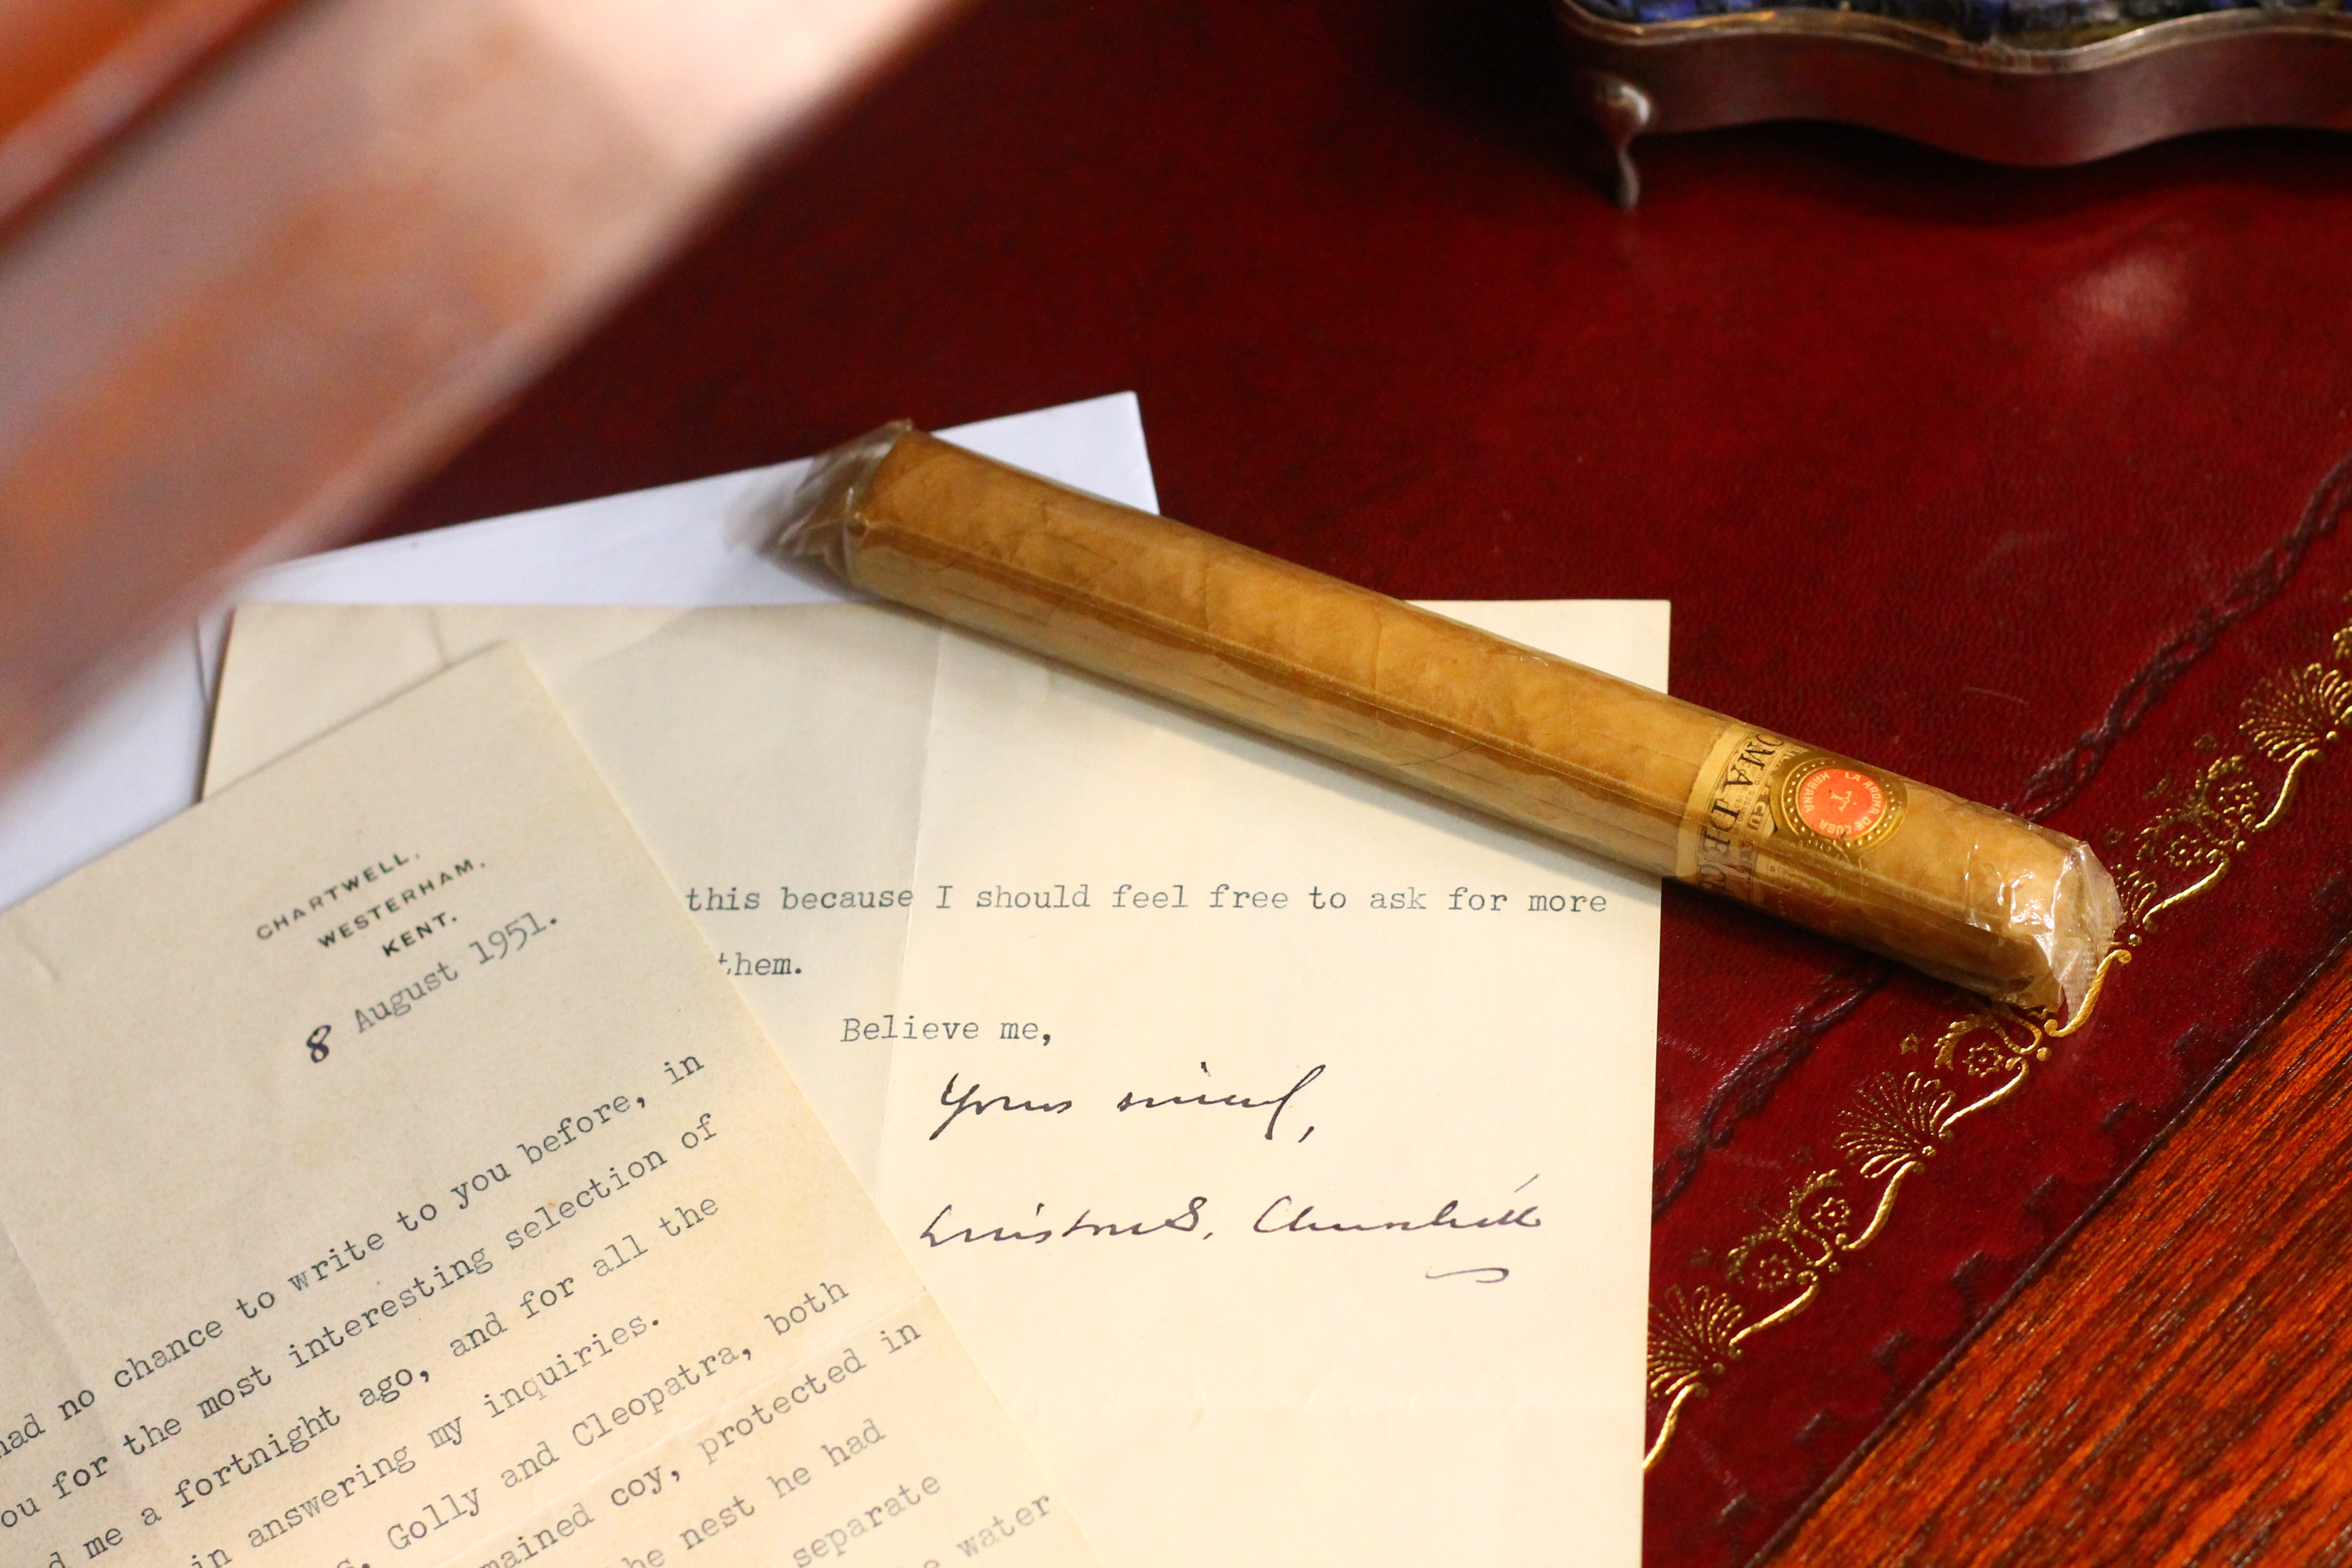 CHARTWELL,
WESTERHAM,
KENT.
8 August 1951.
had no chance to write to you before, in
you for the most interesting selection of
me a fortnight ago, and for all the
in answering my inquiries.
Golly and Cleopatra, both
mained coy, protected in
he nest he had
separate
water
this because I should feel free to ask for more
them.
Believe me,
Yours sincerely,
Winston S. Churchill
OMA DE CU
LA AROMA DE CUBA
HABANA